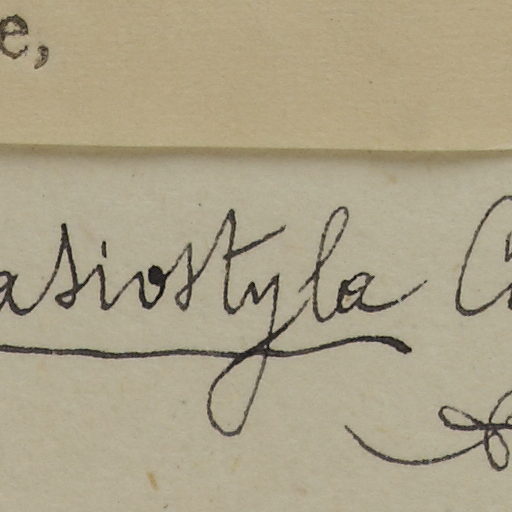 e,
asiostyla C